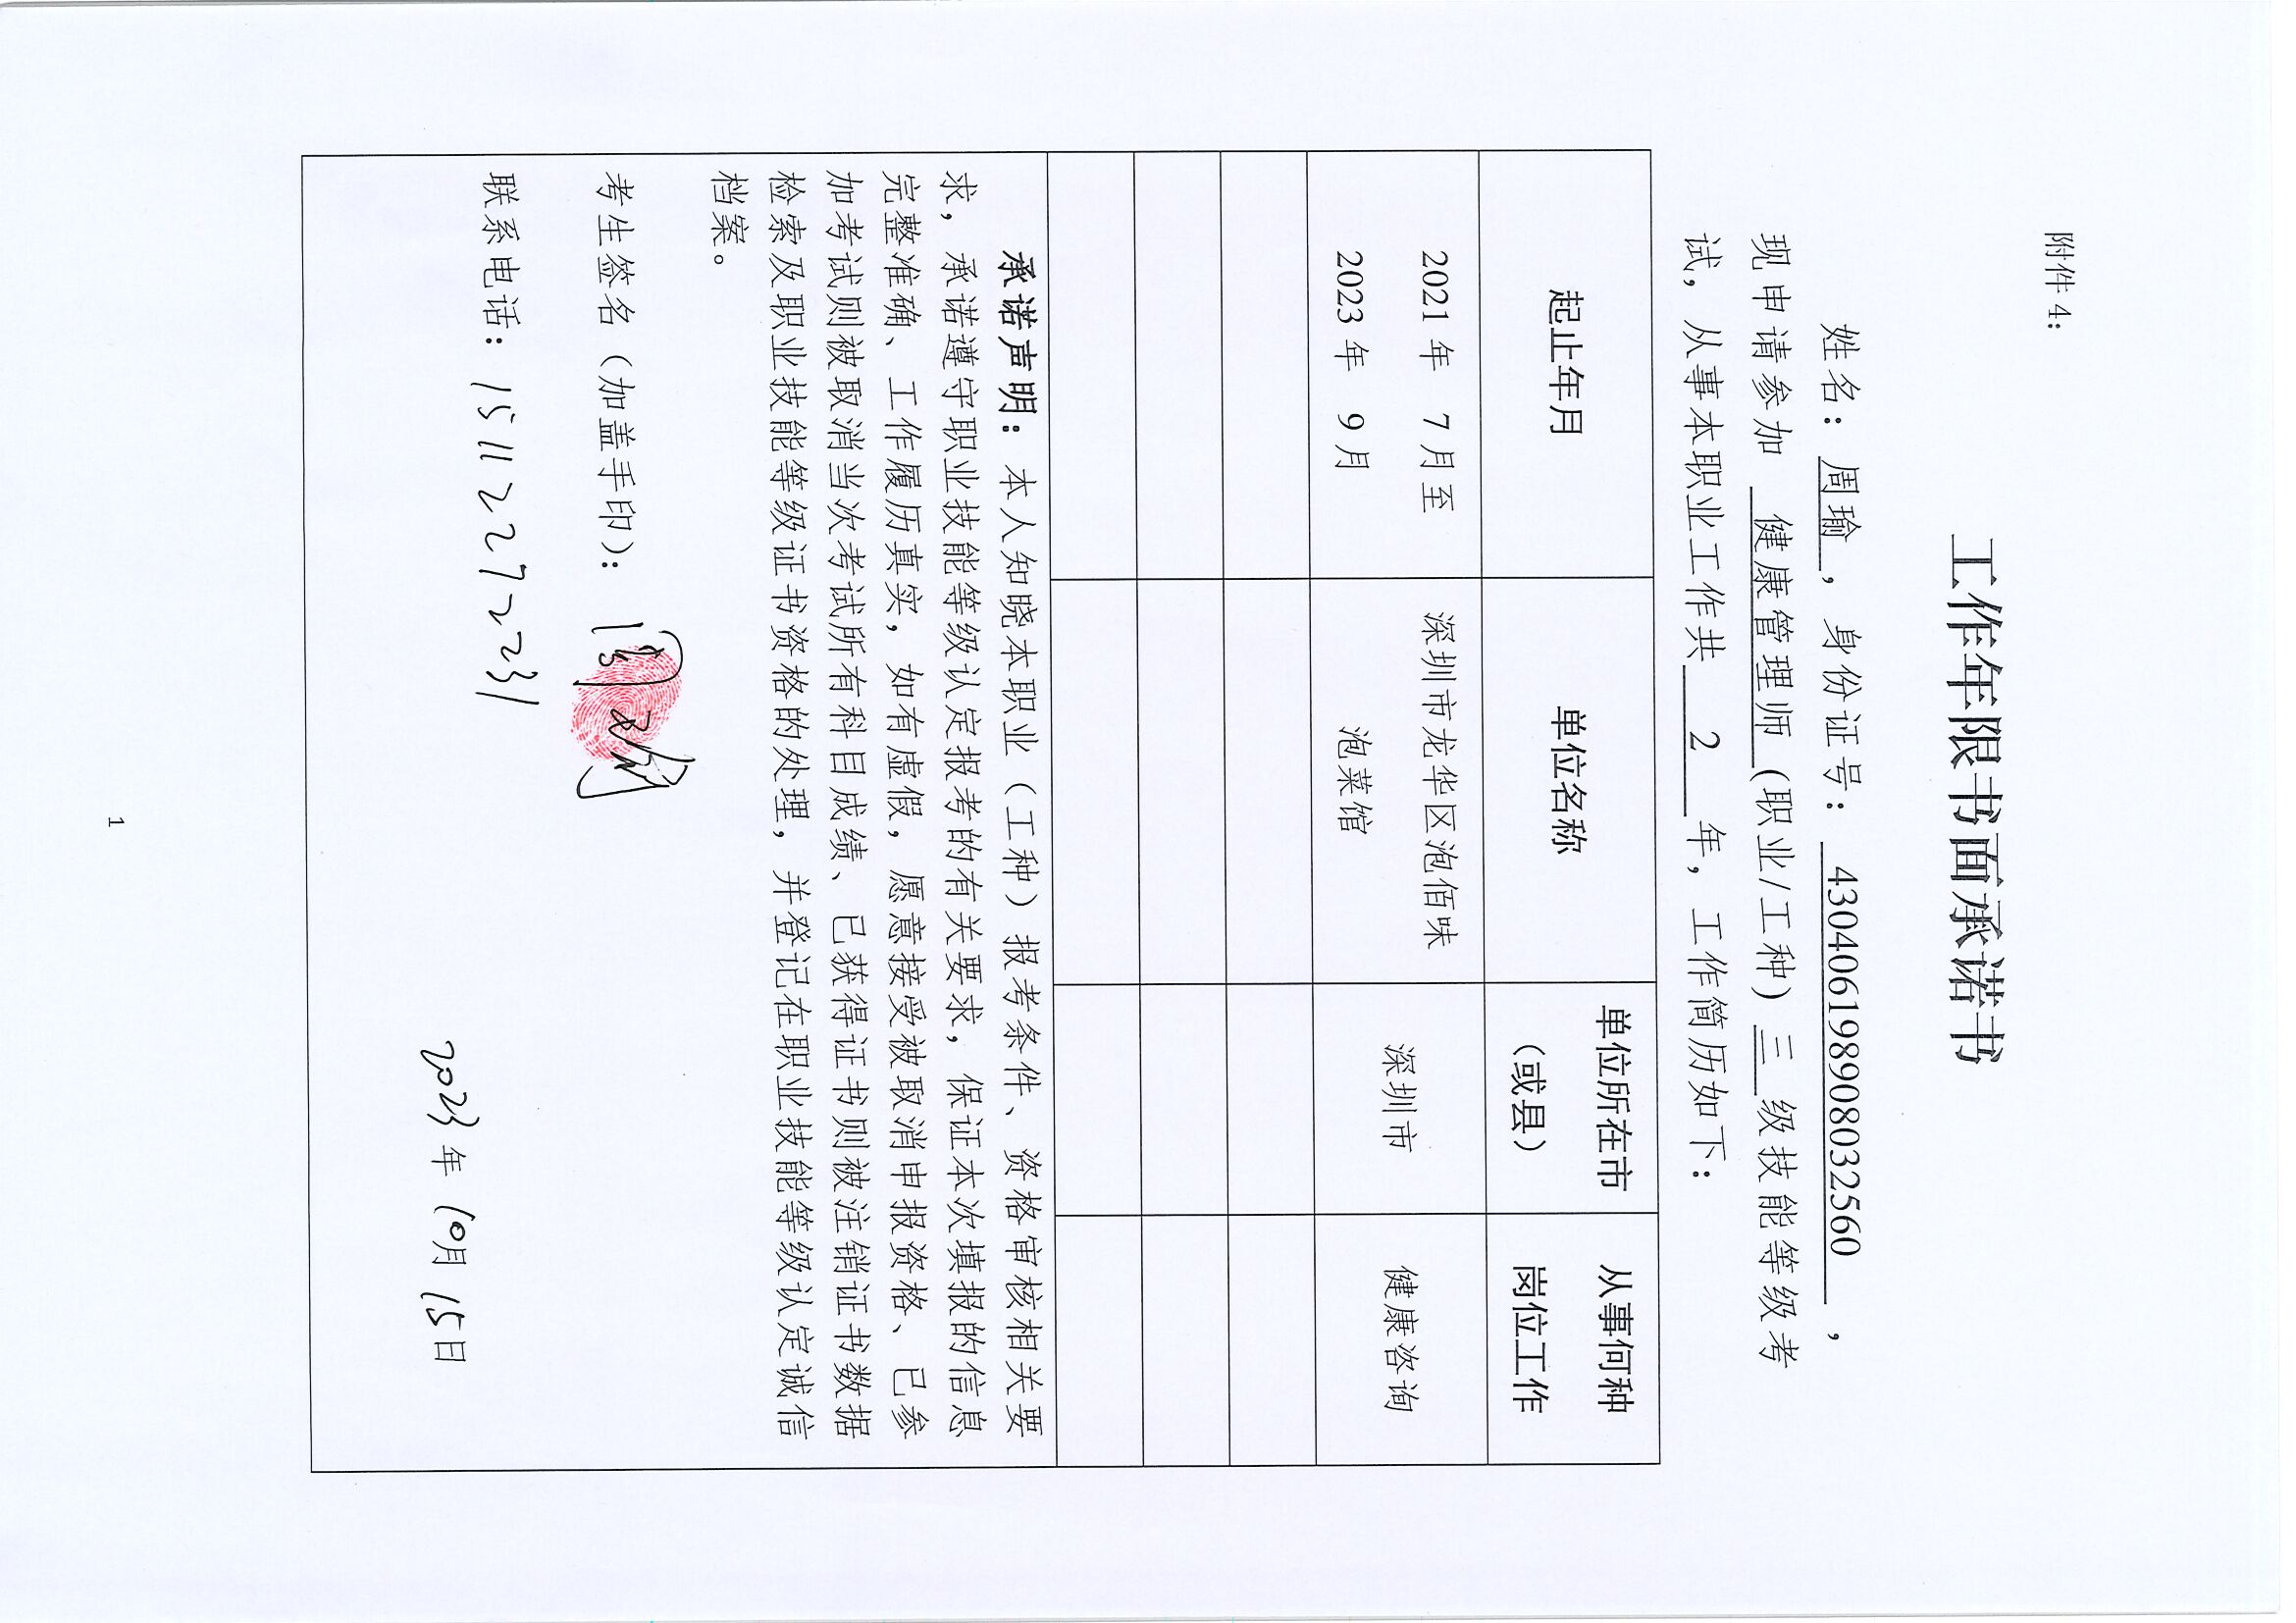 附件 4：
工作年限书面承诺书
姓名：周瑜，身份证号：430406198908032560，
现申请参加 健康管理师 (职业/工种) 三 级技能等级考
试，从事本职业工作共 2 年，工作简历如下：
起止年月 单位名称 单位所在市（或县） 从事何种岗位工作
2021 年 7 月至 深圳市龙华区泡佰味 深圳市 健康咨询
2023 年 9 月 泡菜馆
承诺声明：本人知晓本职业（工种）报考条件、资格审核相关要
求，承诺遵守职业技能等级认定报考的有关要求，保证本次填报的信息
完整准确、工作履历真实，如有虚假，愿意接受被取消申报资格、已参
加考试则被取消当次考试所有科目成绩、已获得证书则被注销证书数据
检索及职业技能等级证书资格的处理，并登记在职业技能等级认定诚信
档案。
考生签名（加盖手印）：周瑜
联系电话：15112272231
2023年10月15日
1